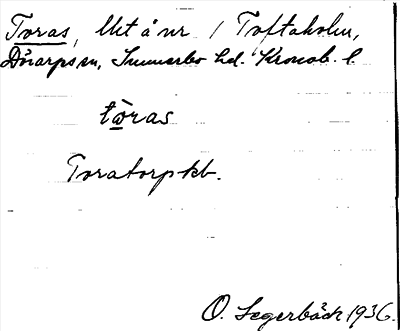 Toras, Utj å nr 1 Toftaholm,
Dörarps sn, Sunnerbo hd. Kronob. l.
tòras
Toratorpkb.
O. Segerbäck 1936.